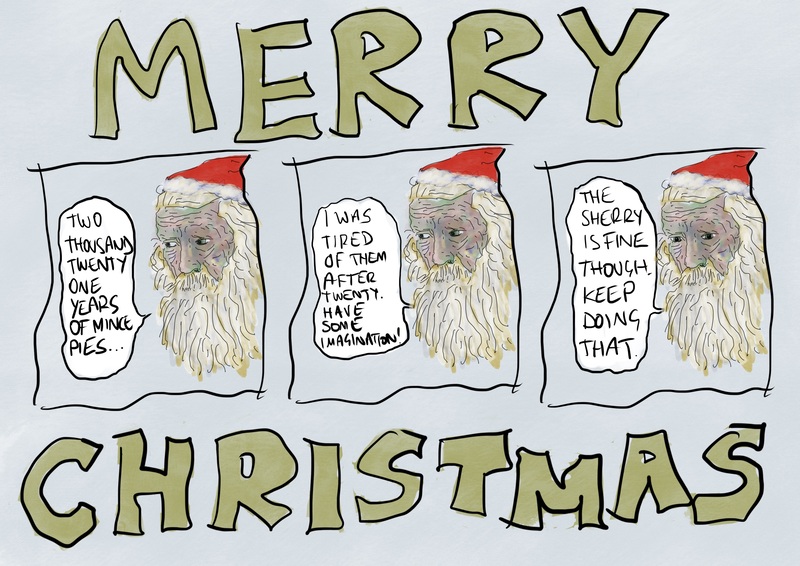 MERRY
TWO
THOUSAND
TWENTY
ONE
YEARS
OF MINCE
PIES...
I WAS
TIRED
OF THEM
AFTER
TWENTY.
HAVE
SOME
IMAGINATION!
THE
SHERRY
IS FINE
THOUGH.
KEEP
DOING
THAT.
CHRISTMAS